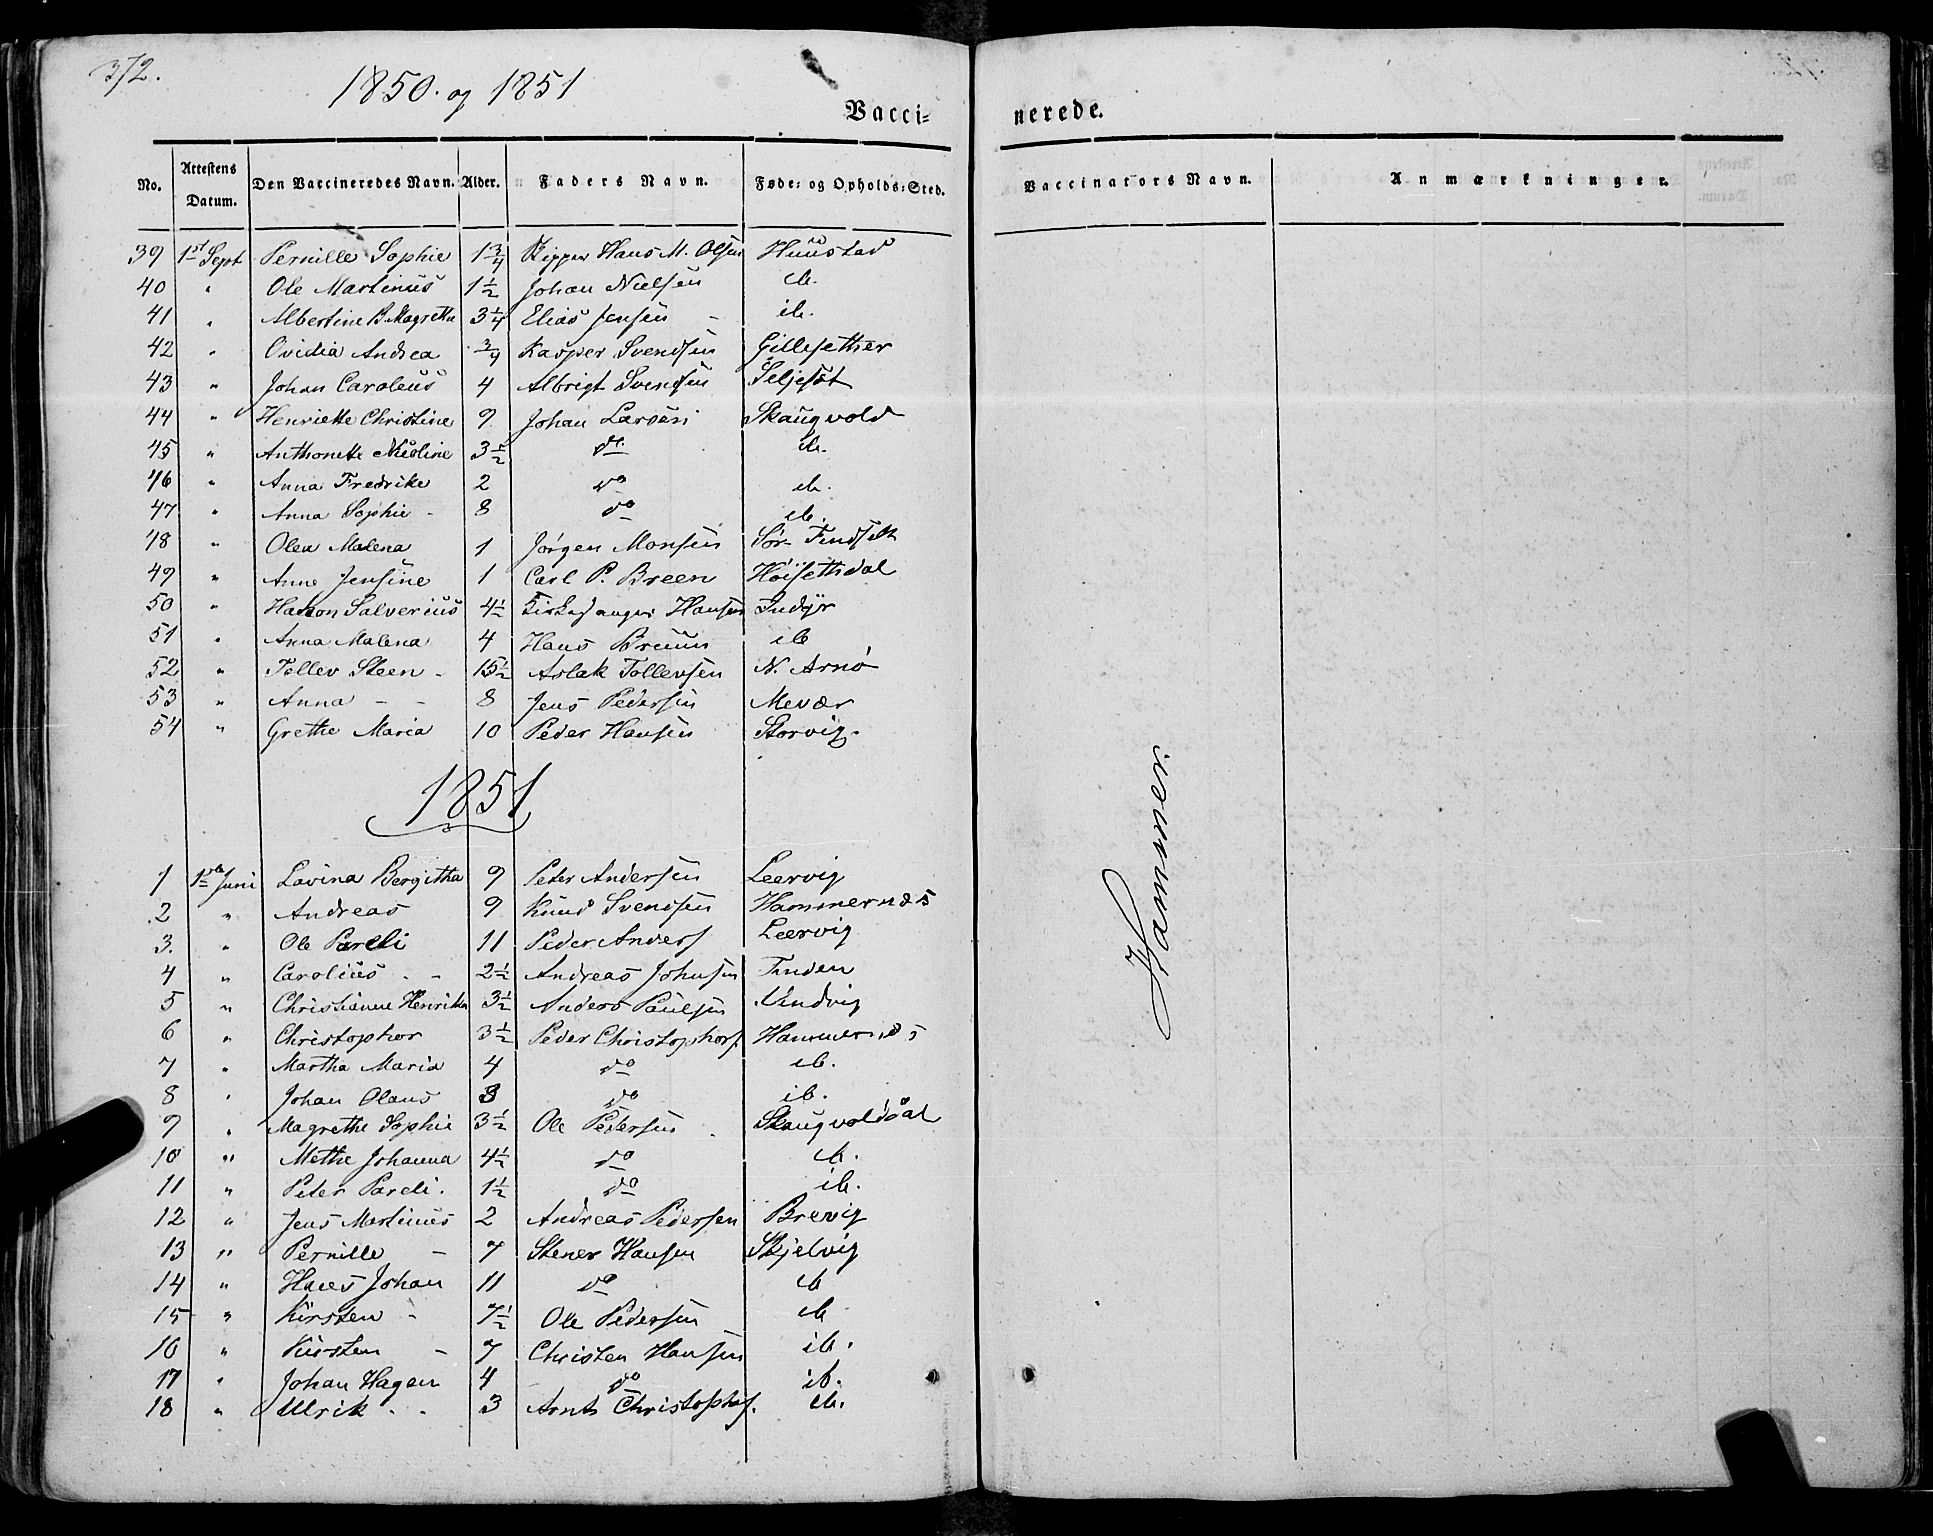 372.
1850. og 1851
Vacci=
nerede.
No. Attestens Datum. Den Vaccineredes Navn. Alder. Faders Navn. Føde= og Opholds=Sted. Vaccinators Navn. Anmærkninger.
39 1st Sept Pernille Sophie 1 3/4 Skipper Hans M. Olsen Huustad
40 " Ole Martinus 1 1/2 Johan Nielsen ib.
41 " Albertine B. Magrethe 3 1/4 Elias Jensen - ib.
42 " Ovidia Andrea 3/4 Kasper Svendsen Gillesether
43 " Johan Carolius 4 Albrigt Svendsen Seljesæt
44 " Henriette Christine 9. Johan Larsen Skaugvold
45 " Anthonette Nicoline 3 1/2 do ib.
46 " Anna Fredrike 2 do ib.
47 " Anna Sophie - 8 do ib.
48 " Olea Malena 1 Jørgen Monsen Sør-
49 " Anne Jensine 1 Carl P. Breen Høisethdal
50 " Salverius 4 1/2 Kirkesanger Hansen Indyr
51 " Anna Malena 4 Hans Bruun ib
52 " Tollev Steen - 15 1/2 Aslak Tollevsen N. Arnø
53 " Anna - - 8 Jens Pedersen Mevær
54 " Grethe Maria 10 Peder Hansen Storvig.
1851
1 1ste Juni Lovina Bergitha 9 Peter Andersen Leervig
2 " Andreas 9 Knud Svendsen Hammernæs
3. " Ole Pareli 11 Peder Anders Leervig
4 " Carolius - - 2 1/2 Andreas Johnsen Finden
5 " Christianne Henrika 3 1/2 Anders Paulsen Vindvig
6 " Christopher 3 1/2 Peder Christophers. Hammernæs
7 " Martha Maria 4 do ib.
8 " Johan Olaus 8 do ib.
9 " Magrethe Sophie 3 1/2 Ole Pedersen - Skaugvoldsal
10 " Methe Johanna 4 1/2 do ib.
11 " Peter Pareli. 1 1/2 do ib.
12 " Jens Martinus 2 Andreas Pedersen Brevig
13 " Pernille - 7 Stener Hansen Skjelvig
14 " Hans Johan 11 do ib
15 " Kirsten - 7 1/2 Ole Pedersen ib
16 " Kirsten - 7 Christen Hansen ib.
17 " Johan Hagen 4 do ib.
18 " Ulrik - - 3 Arnts Christophs. ib.
Hammer.